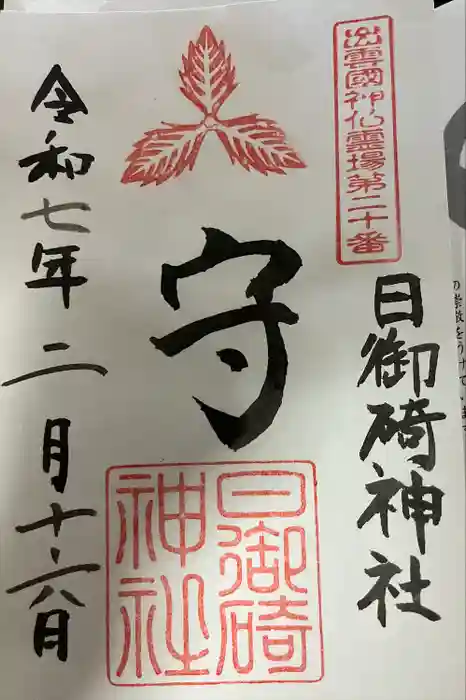 出雲國神仏靈場第二十番
日御碕神社
守
日御碕
神社
令和七年二月十六日
の崇敬をうけています